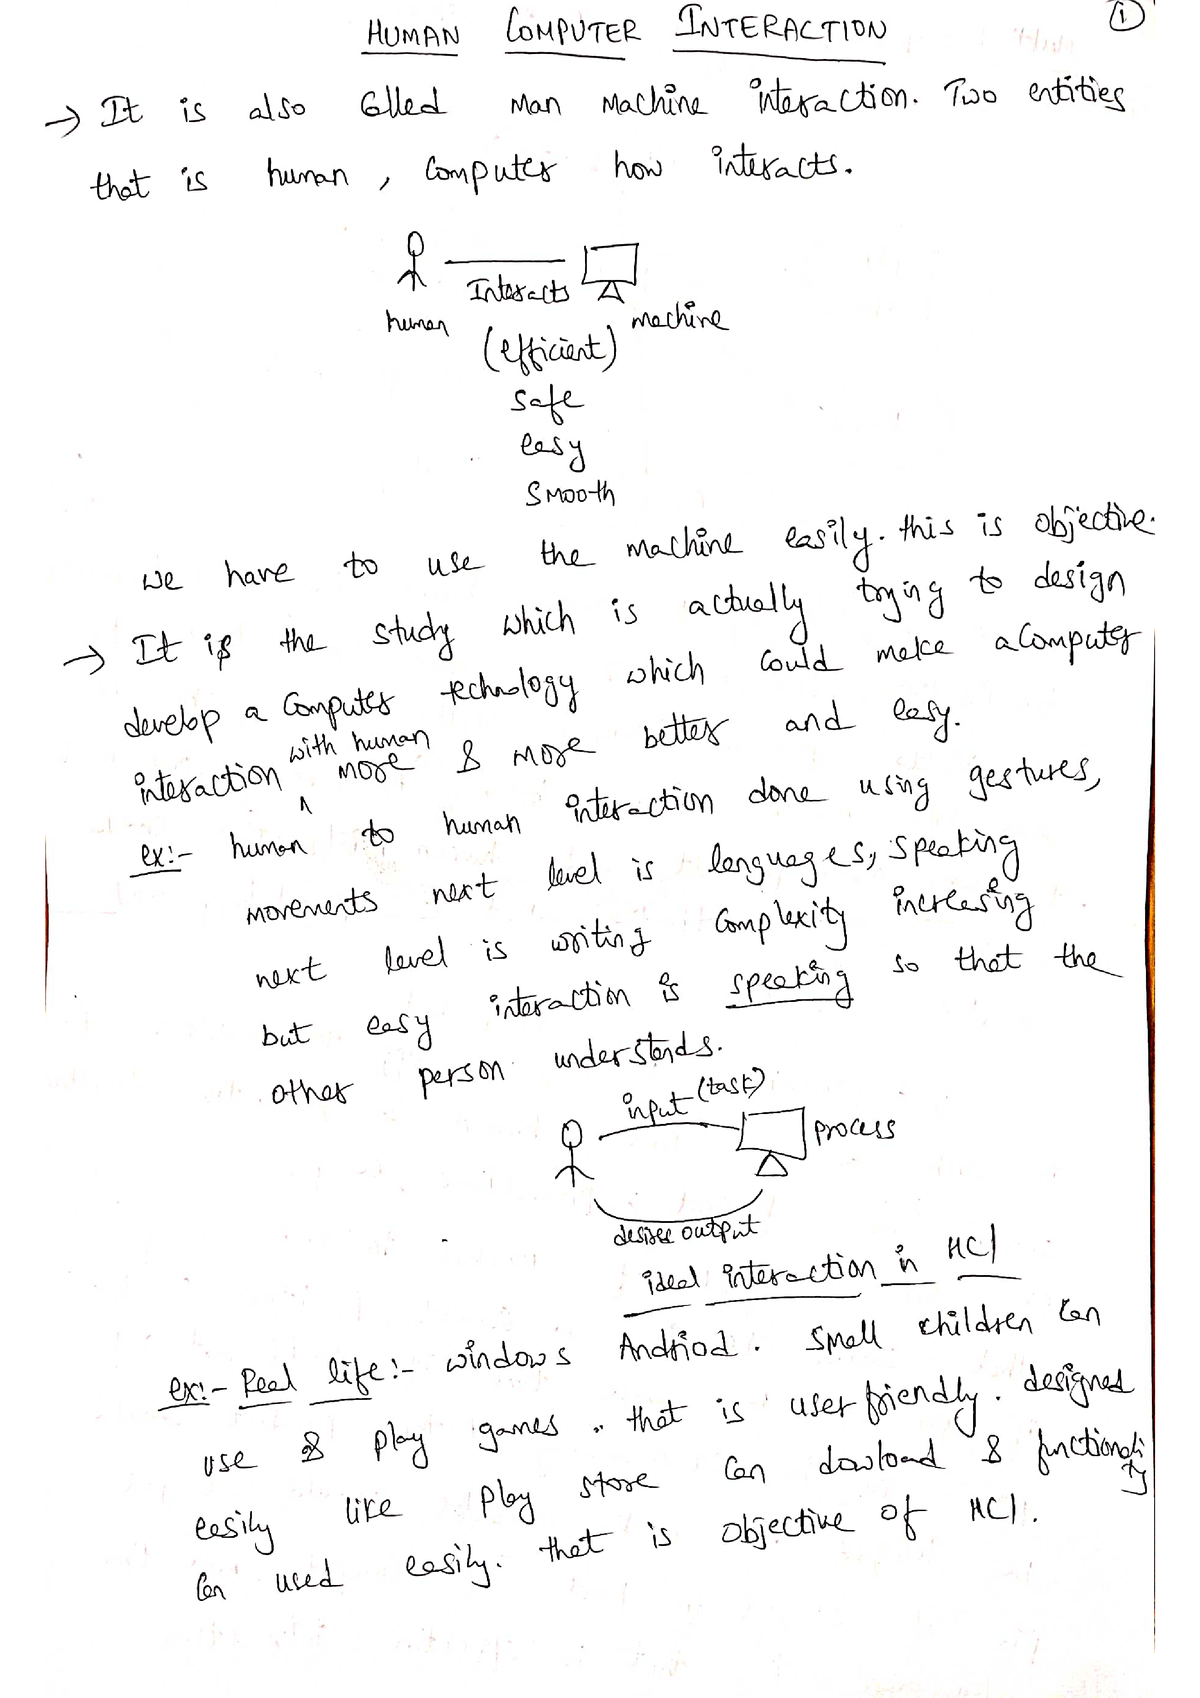 1
HUMAN COMPUTER INTERACTION
→ It is also Called Man Machine interaction. Two entities
that is human, Computer how interacts.
Interacts
human
machine
(efficient)
safe
easy
Smooth
we have to use the machine easily. this is objective.
→ It is the study which is actually trying to design
develop a Computer technology which Could make a Computer
interaction with human more & more better and easy.
ex:- human to human interaction done using gestures,
movements next level is languages, speaking
next level is writing Complexity increasing
but easy interaction is speaking so that the
other person understands.
input (task)
process
desire output
ideal interaction in HCI
ex:- Real life:- windows Andriod. Small children Can
use & play games. that is user friendly. designed
easily like Play store Can dowload & functionality
Can used easily. that is objective of HCI.